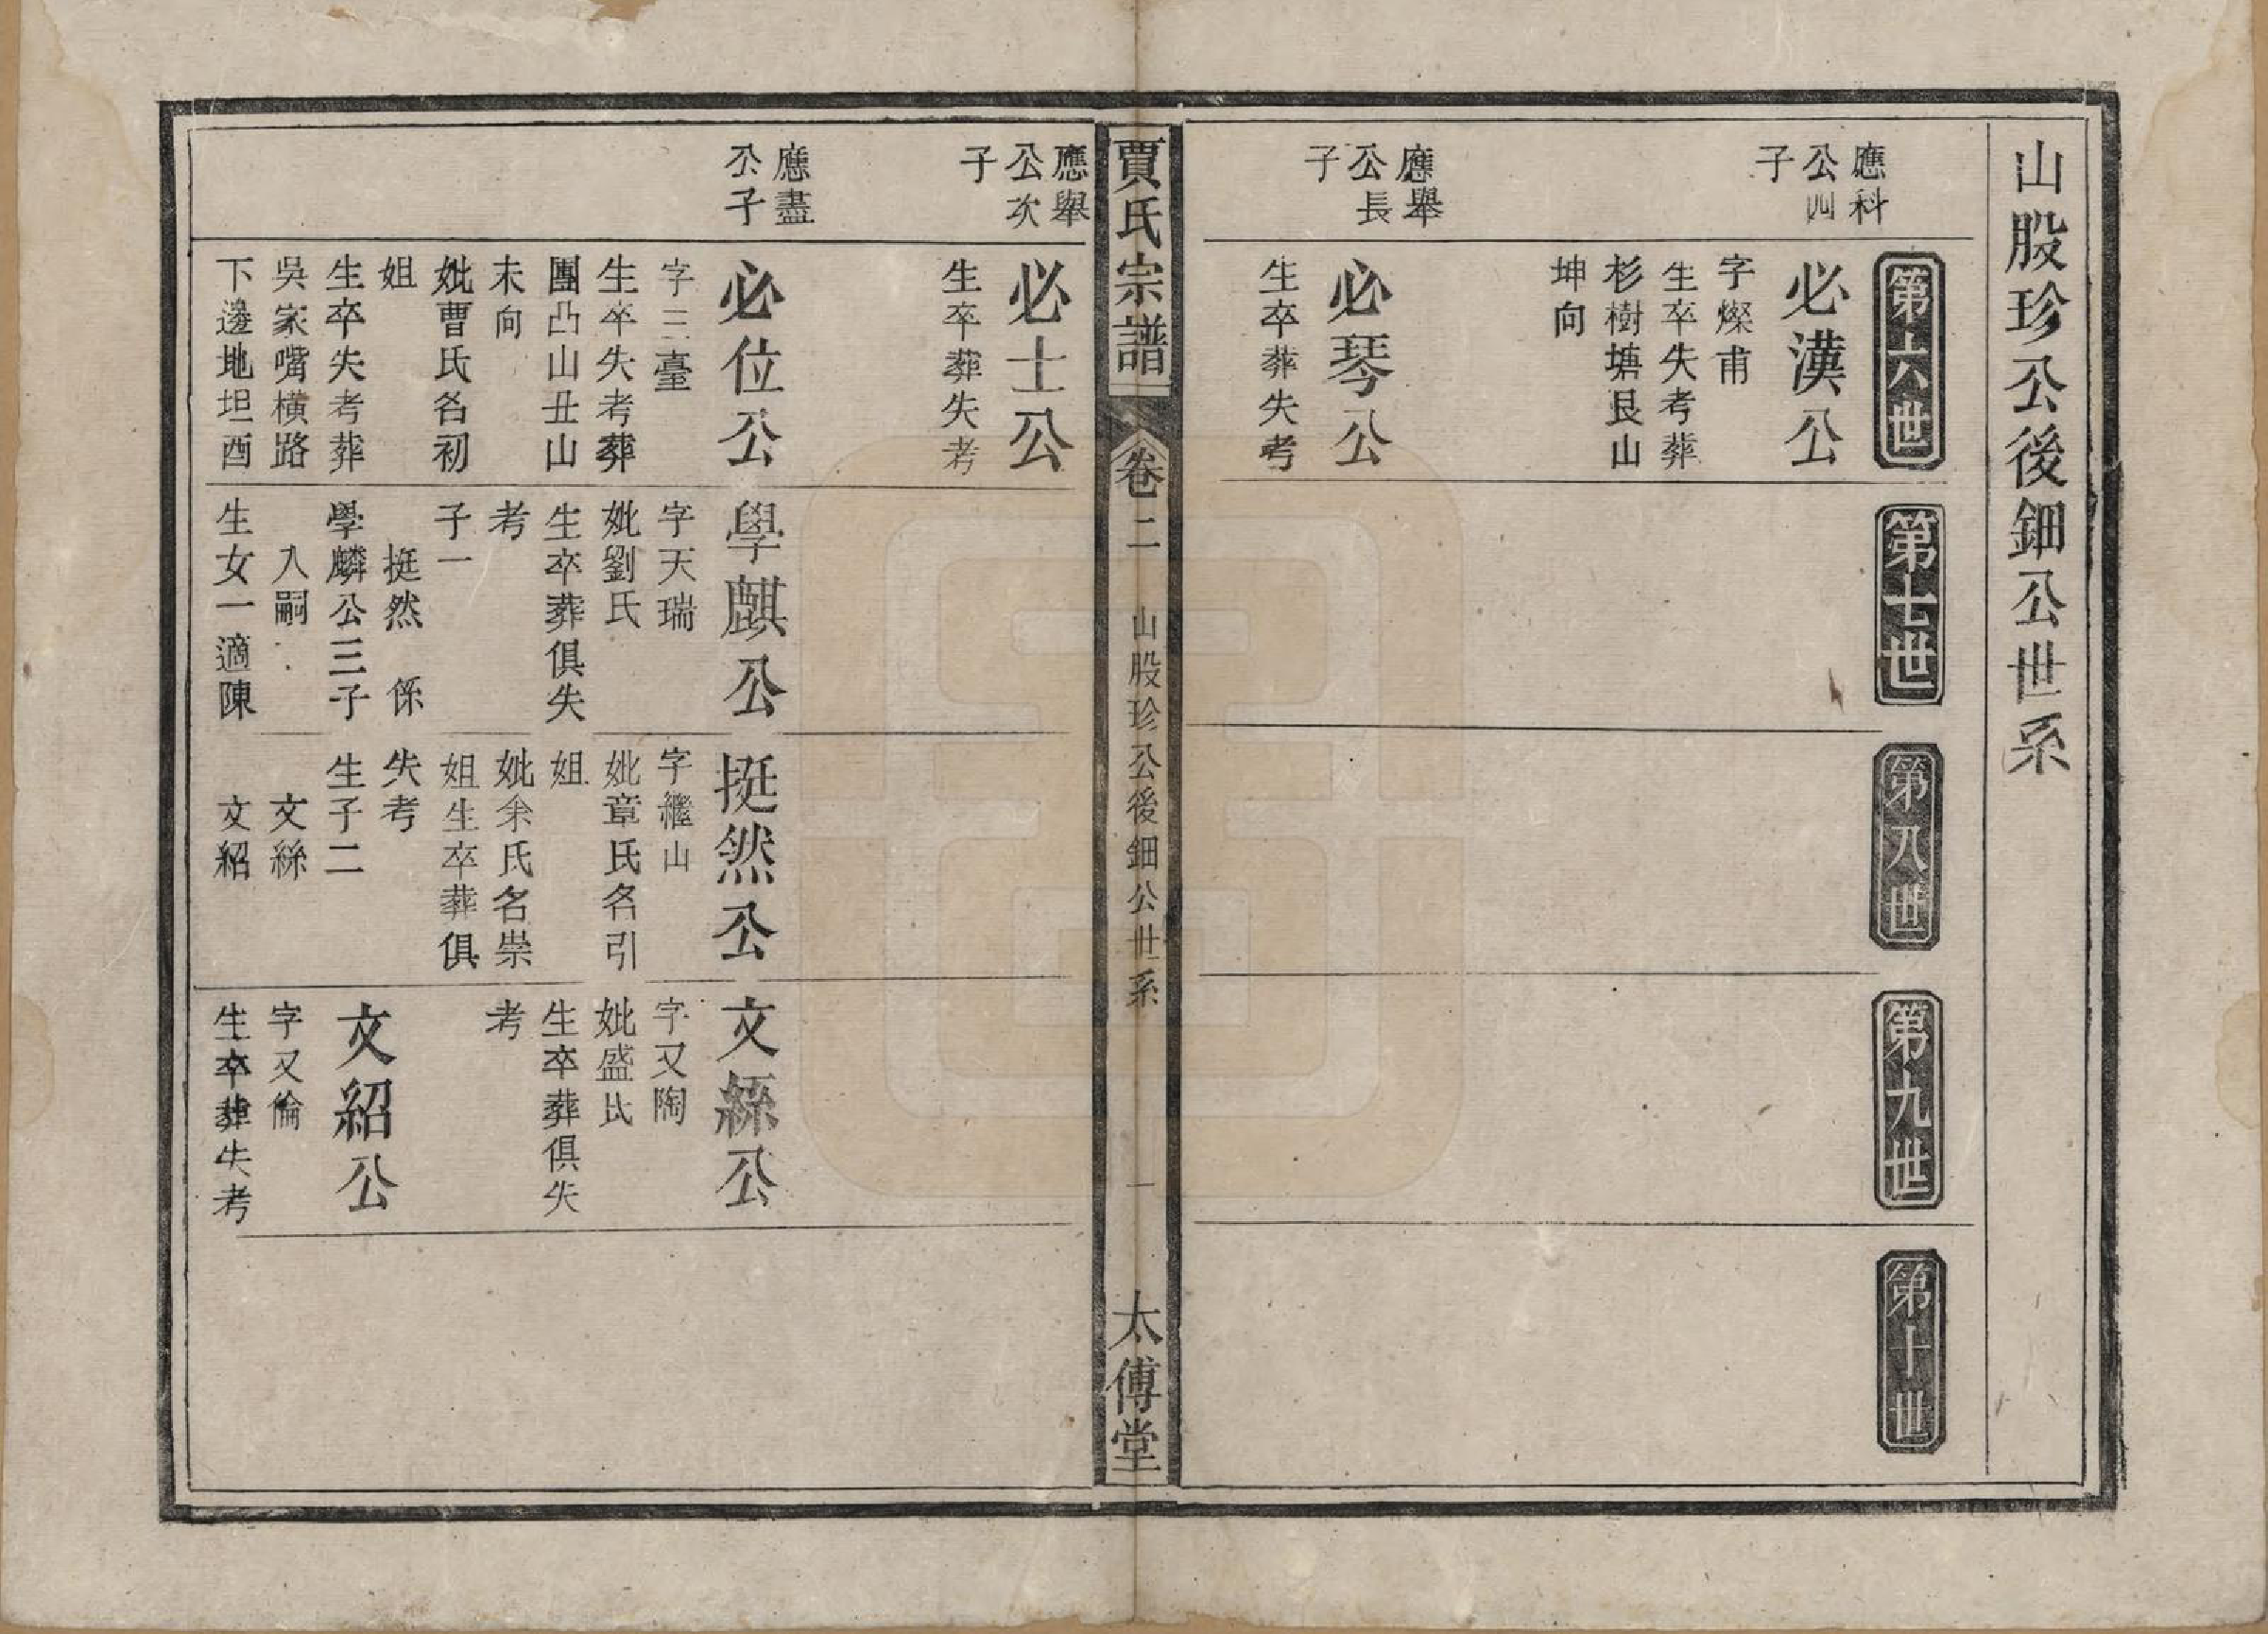 山股珍公後鈿公世系
第六世
第七世
第八世
第九世
第十世
應科
公四
子
必漢公
字燦甫
生卒失考葬
杉樹塘艮山
坤向
應舉
公長
子
必琴公
生卒葬失考
賈氏宗譜
卷二
山股珍公後鈿公世系
一
太傅堂
應舉
公次
子
必士公
生卒葬失考
應盡
公子
必位公
字三臺
生卒失考葬
團凸山丑山
未向
妣曹氏名初
姐
生卒失考葬
吳家嘴橫路
下邊地坦酉
學麒公
字天瑞
妣劉氏
生卒葬俱失
考
子一
挺然 係
學麟公三子
入嗣
生女一適陳
挺然公
字繼山
妣章氏名引
姐
妣余氏名崇
姐生卒葬俱
失考
生子二
文綜
文紹
文綜公
字又陶
妣盛氏
生卒葬俱失
考
文紹公
字又倫
生卒葬失考